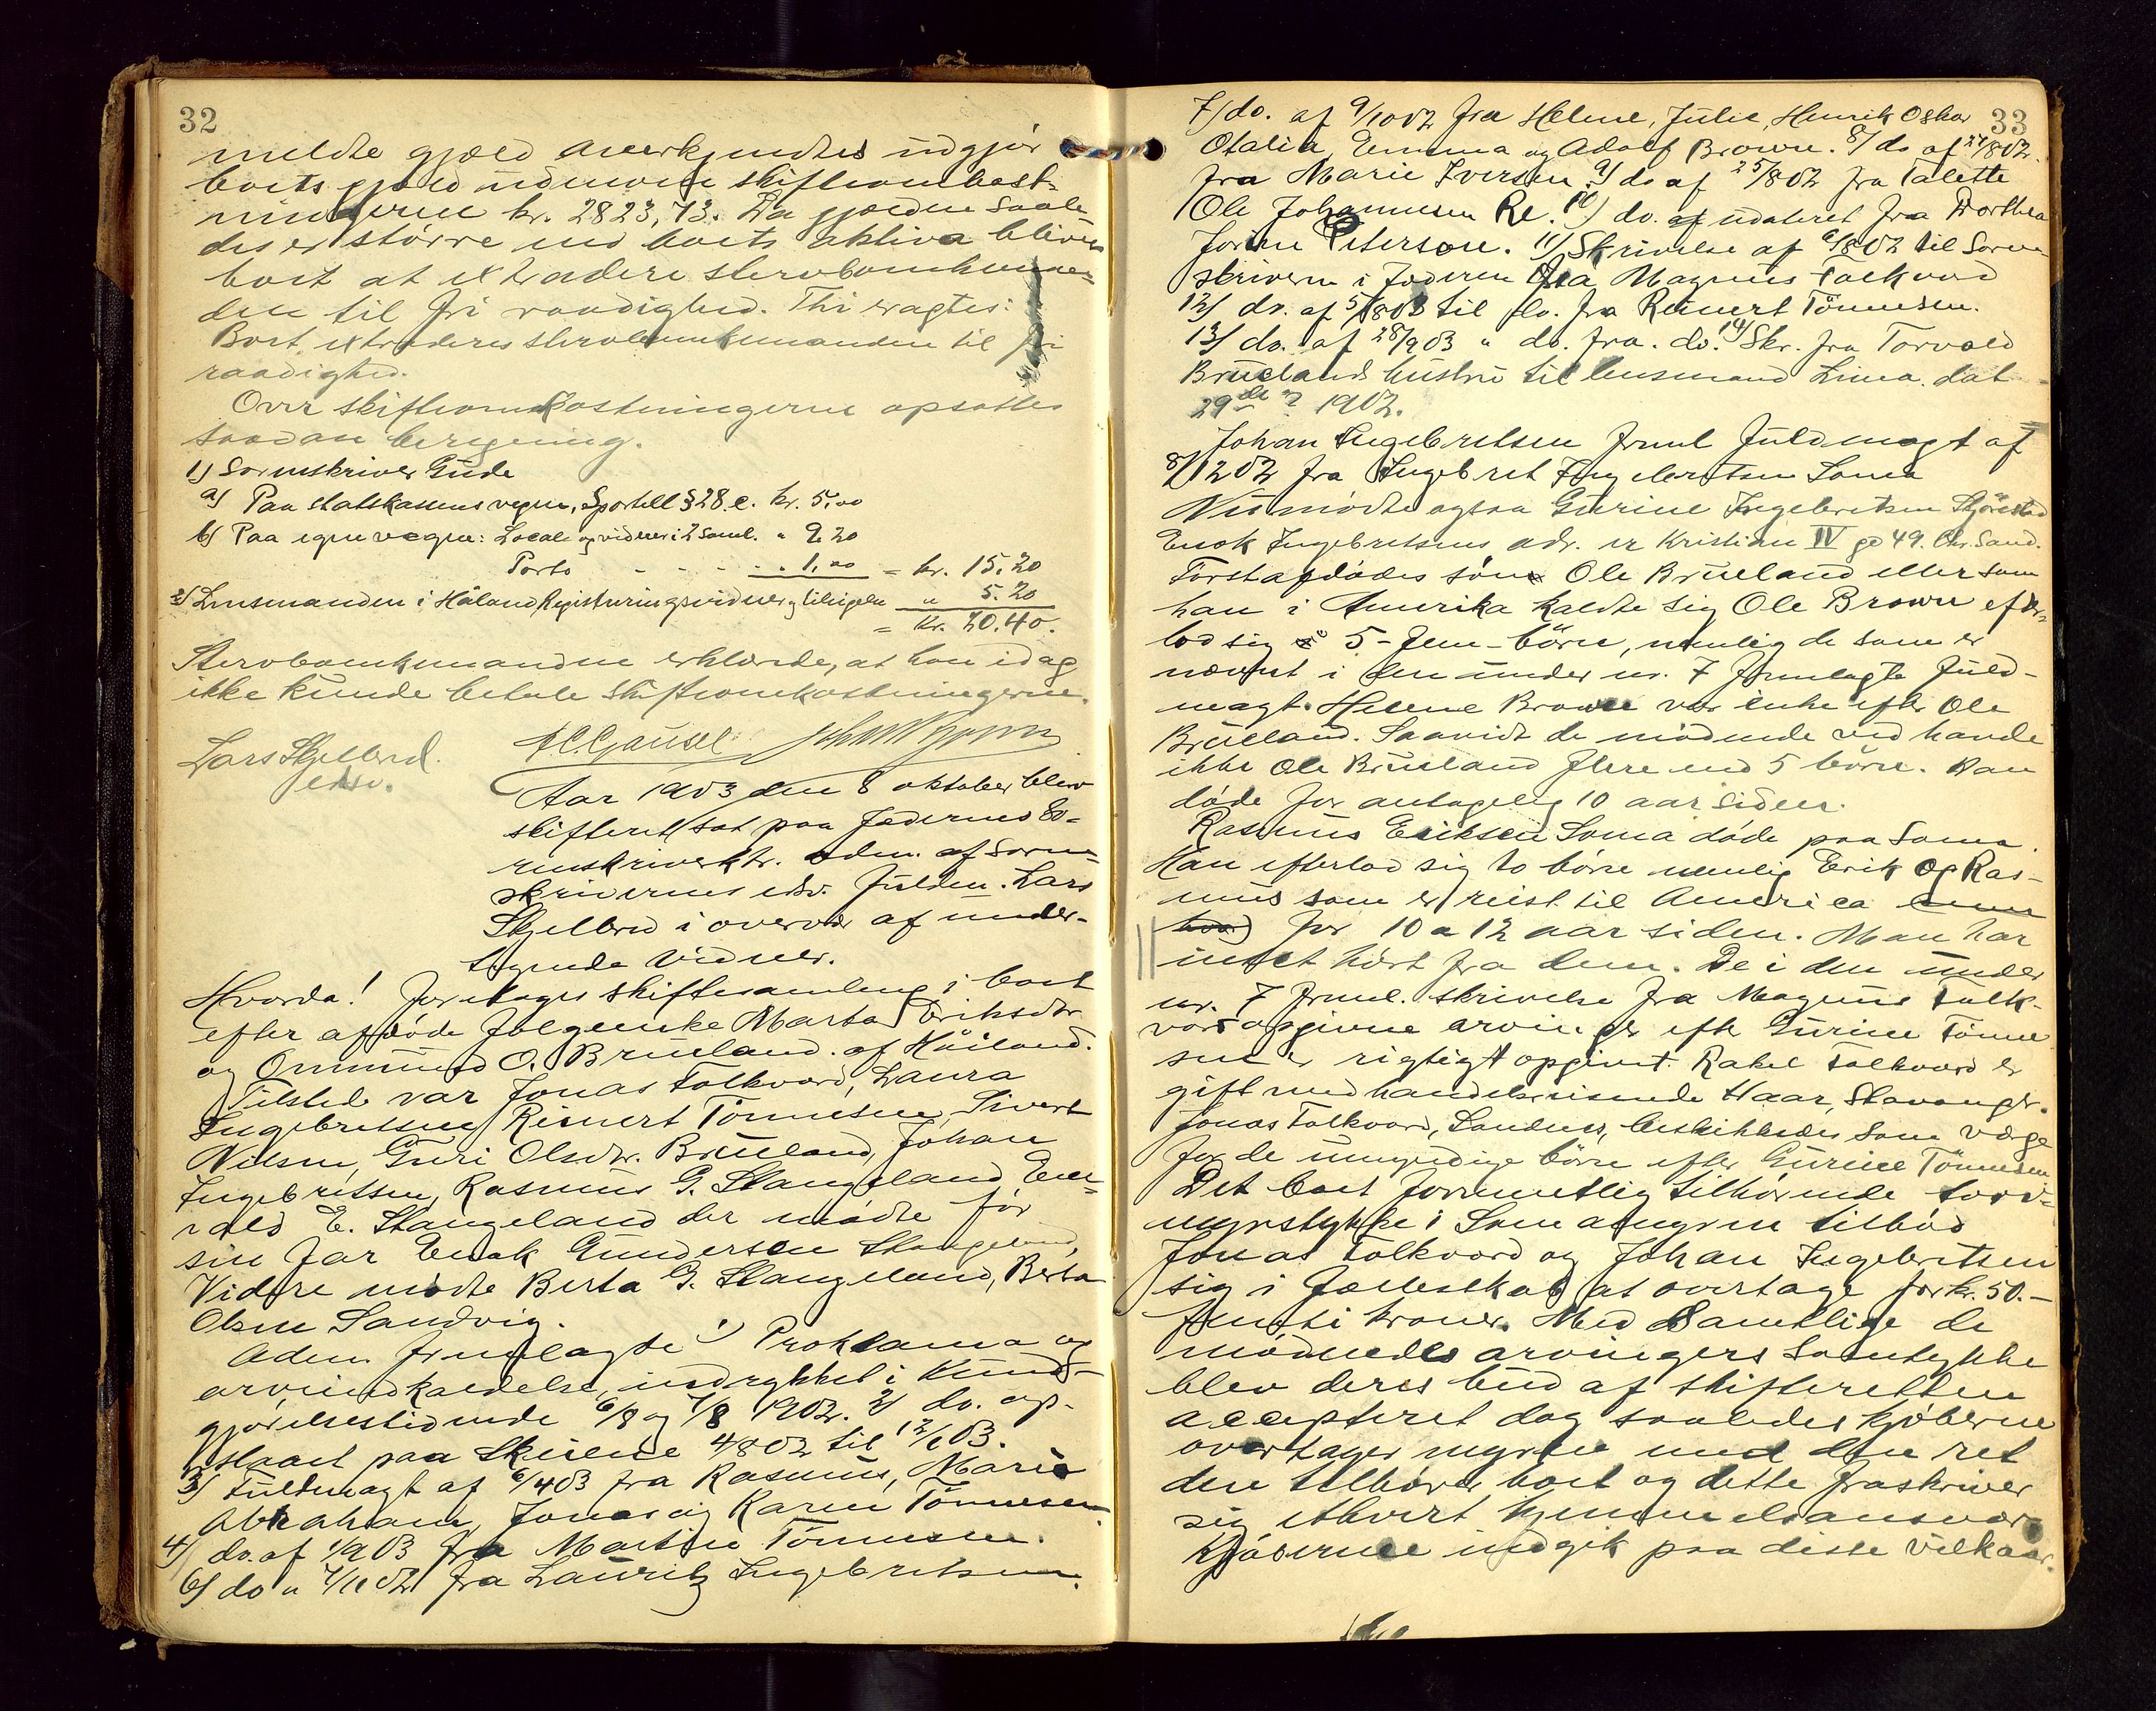 32
meldte gjæld anerkjendtes udgjør
boets gjæld udenom skifteomkost-
ningerne kr. 2823,73. Da gjælden saale-
des er større end boets aktiva blives
boet at extradere stervbomkvin-
den til fri raadighed. Thi eragtes:
Boet extraderes stervbomkemanden til fri
raadighed.
Over skifteomkostningerne opsattes
saadan beregning.
1) Sorenskriver Gude
a) Paa statskassens vegne, Sportell § 28.c. kr. 5.00
b) Paa egne vegne: Locale og vidner i 2 saml. " 9.20
Porto - - - - 1.00 = kr. 15.20
2) Lensmanden i Håland, Registreringsvidner " 5.20
= Kr. 20.40.
Stervbomkemanden erklærede, at han idag
ikke kunde betale skifteomkostningerne.
Lars Skjelbred
edsv.
Aar 1903 den 8 oktober blev
skifteret sat paa Jæderens So-
renskriverktr. adm. af Soren-
skriverens edsv. fuldm. Lars
Skjelbred i overvær af under-
tegnede vidner.
Hvorda! foretages skiftesamling i boet
efter afdøde folgeenke Marta Eriksdtr
og Ommund O. Brueland af Høiland.
Tilstede var Jonas Folkvord, Laura
Ingebretsen, Reinert Tönnesen, Sivert
Nilsen, Guri Olsdtr. Brueland, Johan
Ingebretsen, Rasmus G. Stangeland, Ene-
vald E. Stangeland der mødte for
sin far Enok Gundersen Stangeland,
Videre mødte Berta G. Stangeland, Berta
Olsen Sandvig.
Adm. fremlagde 1) Proklama og
arveindkaldelse, indrykket i Kund-
gjørelsestidende 6/8 og 7/8 1902. 2) do. op-
slaaet paa Skeiene 4/8 02 til 12/1 03.
3) Fuldmagt af 6/4 03 fra Rasmus, Marie
Abraham, Jonas og Karen Tönnesen.
4) do. af 1/9 03 fra Martin Tönnesen.
6) do " 4/11 02 fra Lauritz Ingebretsen.
33
7) do. af 9/10 02 fra Helene, Julie, Henrik Oskar
Otalia, Emma og Adolf Brown. 8) do af 27/8 02.
fra Marie Iversen. 9) do af 25/8 02 fra Talette
Ole Johannesen Re. 10) do. udateret fra Dorthea
Jorine Peterson. 11) Skrivelse af 6/8 02 til Soren-
skriveren i Jæderen fra Magnus Folkvord
12) do. af 5/8 03 til do. fra Reinert Tönnesen.
13) do. af 28/9 03 " do. fra. do. 14) Skr. fra Torvald
Bruelands hustru til lensmand Lima. dat
29de 1902.
Johan Ingebretsen freml fuldmagt af
8/12 02 fra Ingebret Ingebretsen Soma
Nu mødte ogsaa Gurine Ingebretsen Skjörestad
Enok Ingebretsens adr. er Kristian IV gd 49. Chr. Sand.
Førstafdødes søn Ole Brueland eller som
han i Amerika kaldte sig Ole Brown efter-
lod sig 5-fem-börn, nemlig de som er
nævnt i den under nr. 7 fremlagte fuld-
magt. Helene Brown var enke efter Ole
Brueland. Saavidt de mødende ved havde
ikke Ole Brueland flere end 5 børn. Han
døde for antagelig 10 aar siden.
Rasmus Eriksen Soma døde paa Soma.
Han efterlod sig to børn nemlig Erik og Ras-
mus som er reist til America
for 10 a 12 aar siden. Man har
intet hørt fra dem. De i den under
nr. 7 freml. skrivelse fra Magnus Folk-
vord opgivne arvinger efter Gurine Tönne-
sen er rigtigt opgivet. Rakel Folkvord er
gift med handelsreisende Haar, Stavanger.
Jonas Folkvord, Sandnes, beskikkedes som værge
for de umyndige børn efter Gurine Tönnesen
Det boet forrentlig tilhørende torv-
myrstykke i Soma myren tilbød
Jonas Folkvord og Johan Ingebretsen
sig i fællesskab at overtage for kr. 50.-
femti kroner. Med samtlige de
mødendes arvingers samtykke
blev deres bud af skifteretten
accepteret dog saaledes kjøberne
overtager myren med den ret
den tilhører boet og dette fraskriver
sig ethvert hjemmelsansvar.
Kjøberne indgik paa disse vilkaar.